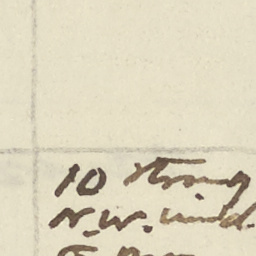 10 strong
N.W. wind.